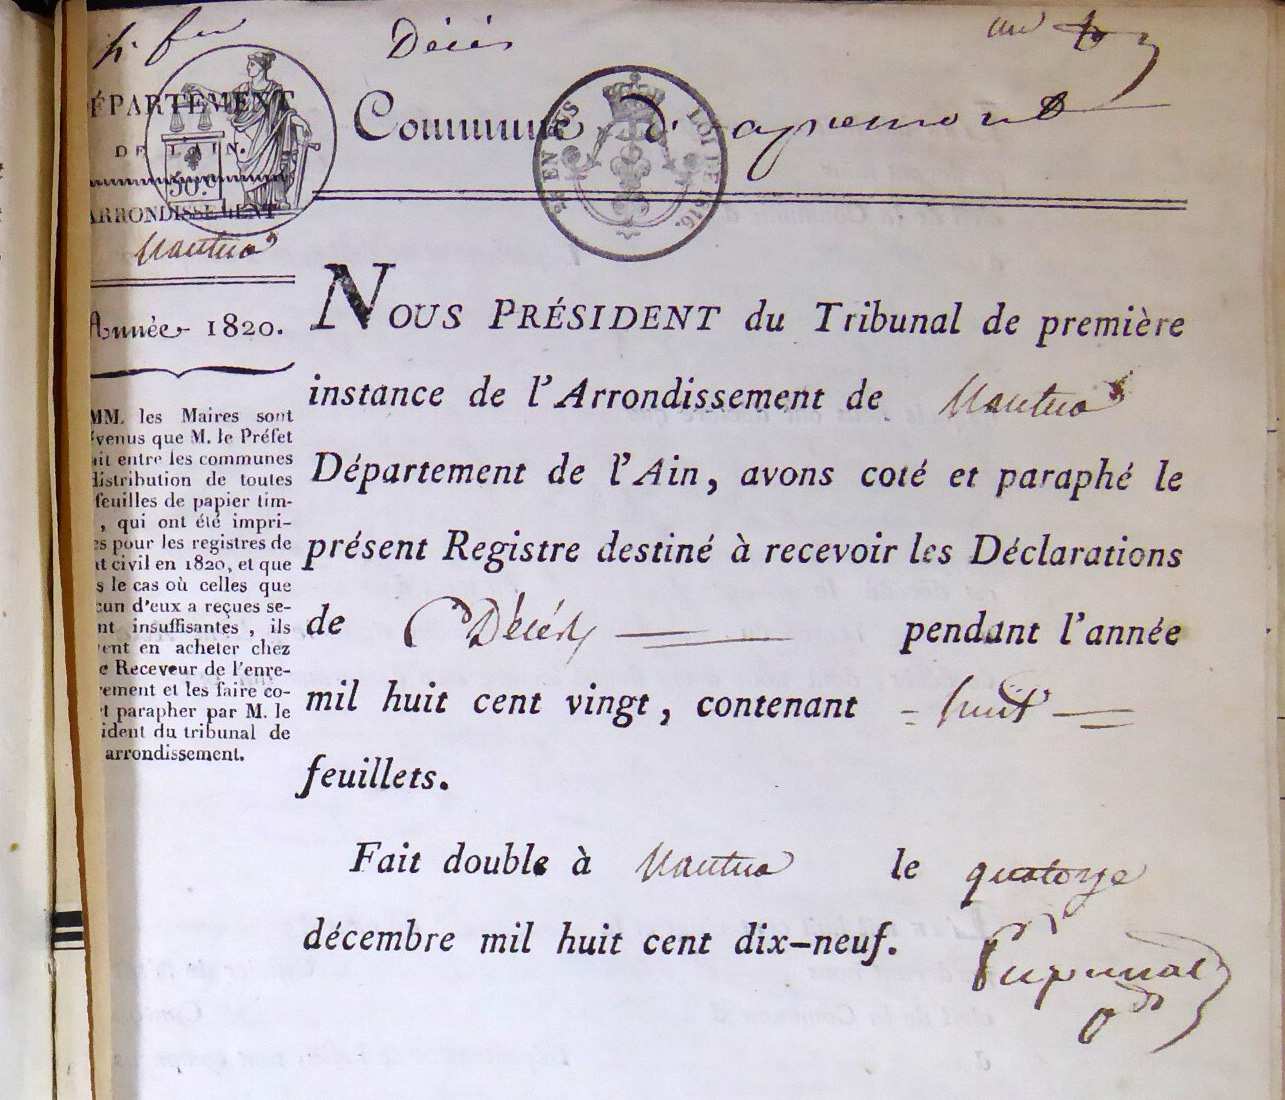 Décès
DÉPARTEMENT
DE L'AIN.
50.c
ARRONDISSEMENT
Nantua
Commune d'apremont
EN SUS
LOI DE 1816.
Année 1820.
MM. les Maires sont
venus que M. le Préfet
ait entre les communes
distribution de toutes
feuilles de papier tim-
, qui ont été impri-
es pour les registres de
at civil en 1820, et que
s le cas où celles que
cun d'eux a reçues se-
nt insuffisantes, ils
vent en acheter chez
e Receveur de l'enre-
rement et les faire co-
t parapher par M. le
ident du tribunal de
arrondissement.
NOUS PRÉSIDENT du Tribunal de première
instance de l'Arrondissement de Nantua
Département de l'Ain, avons coté et paraphé le
présent Registre destiné à recevoir les Déclarations
de Décès pendant l'année
mil huit cent vingt, contenant huit
feuillets.
Fait double à Nantua le quatorze
décembre mil huit cent dix-neuf.